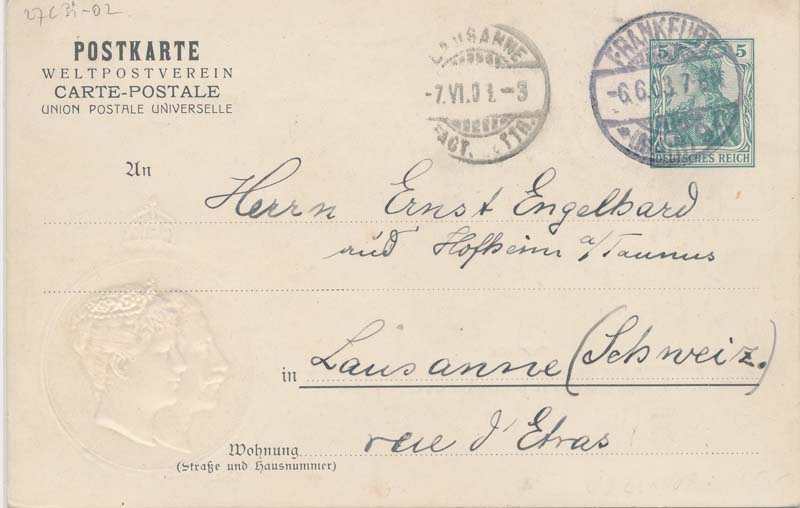 27C31-02
POSTKARTE
WELTPOSTVEREIN
CARTE-POSTALE
UNION POSTALE UNIVERSELLE
LAUSANNE
-7.VI.0 -3
FACT. TTR.
FRANKFURT
-6.6.03.7-
5 5
DEUTSCHES REICH
An
Herrn Ernst Engelhard
Hofheim a/Taunus
in Lausanne (Schweiz.)
Wohnung rue d'Etras
(Straße und Hausnummer)